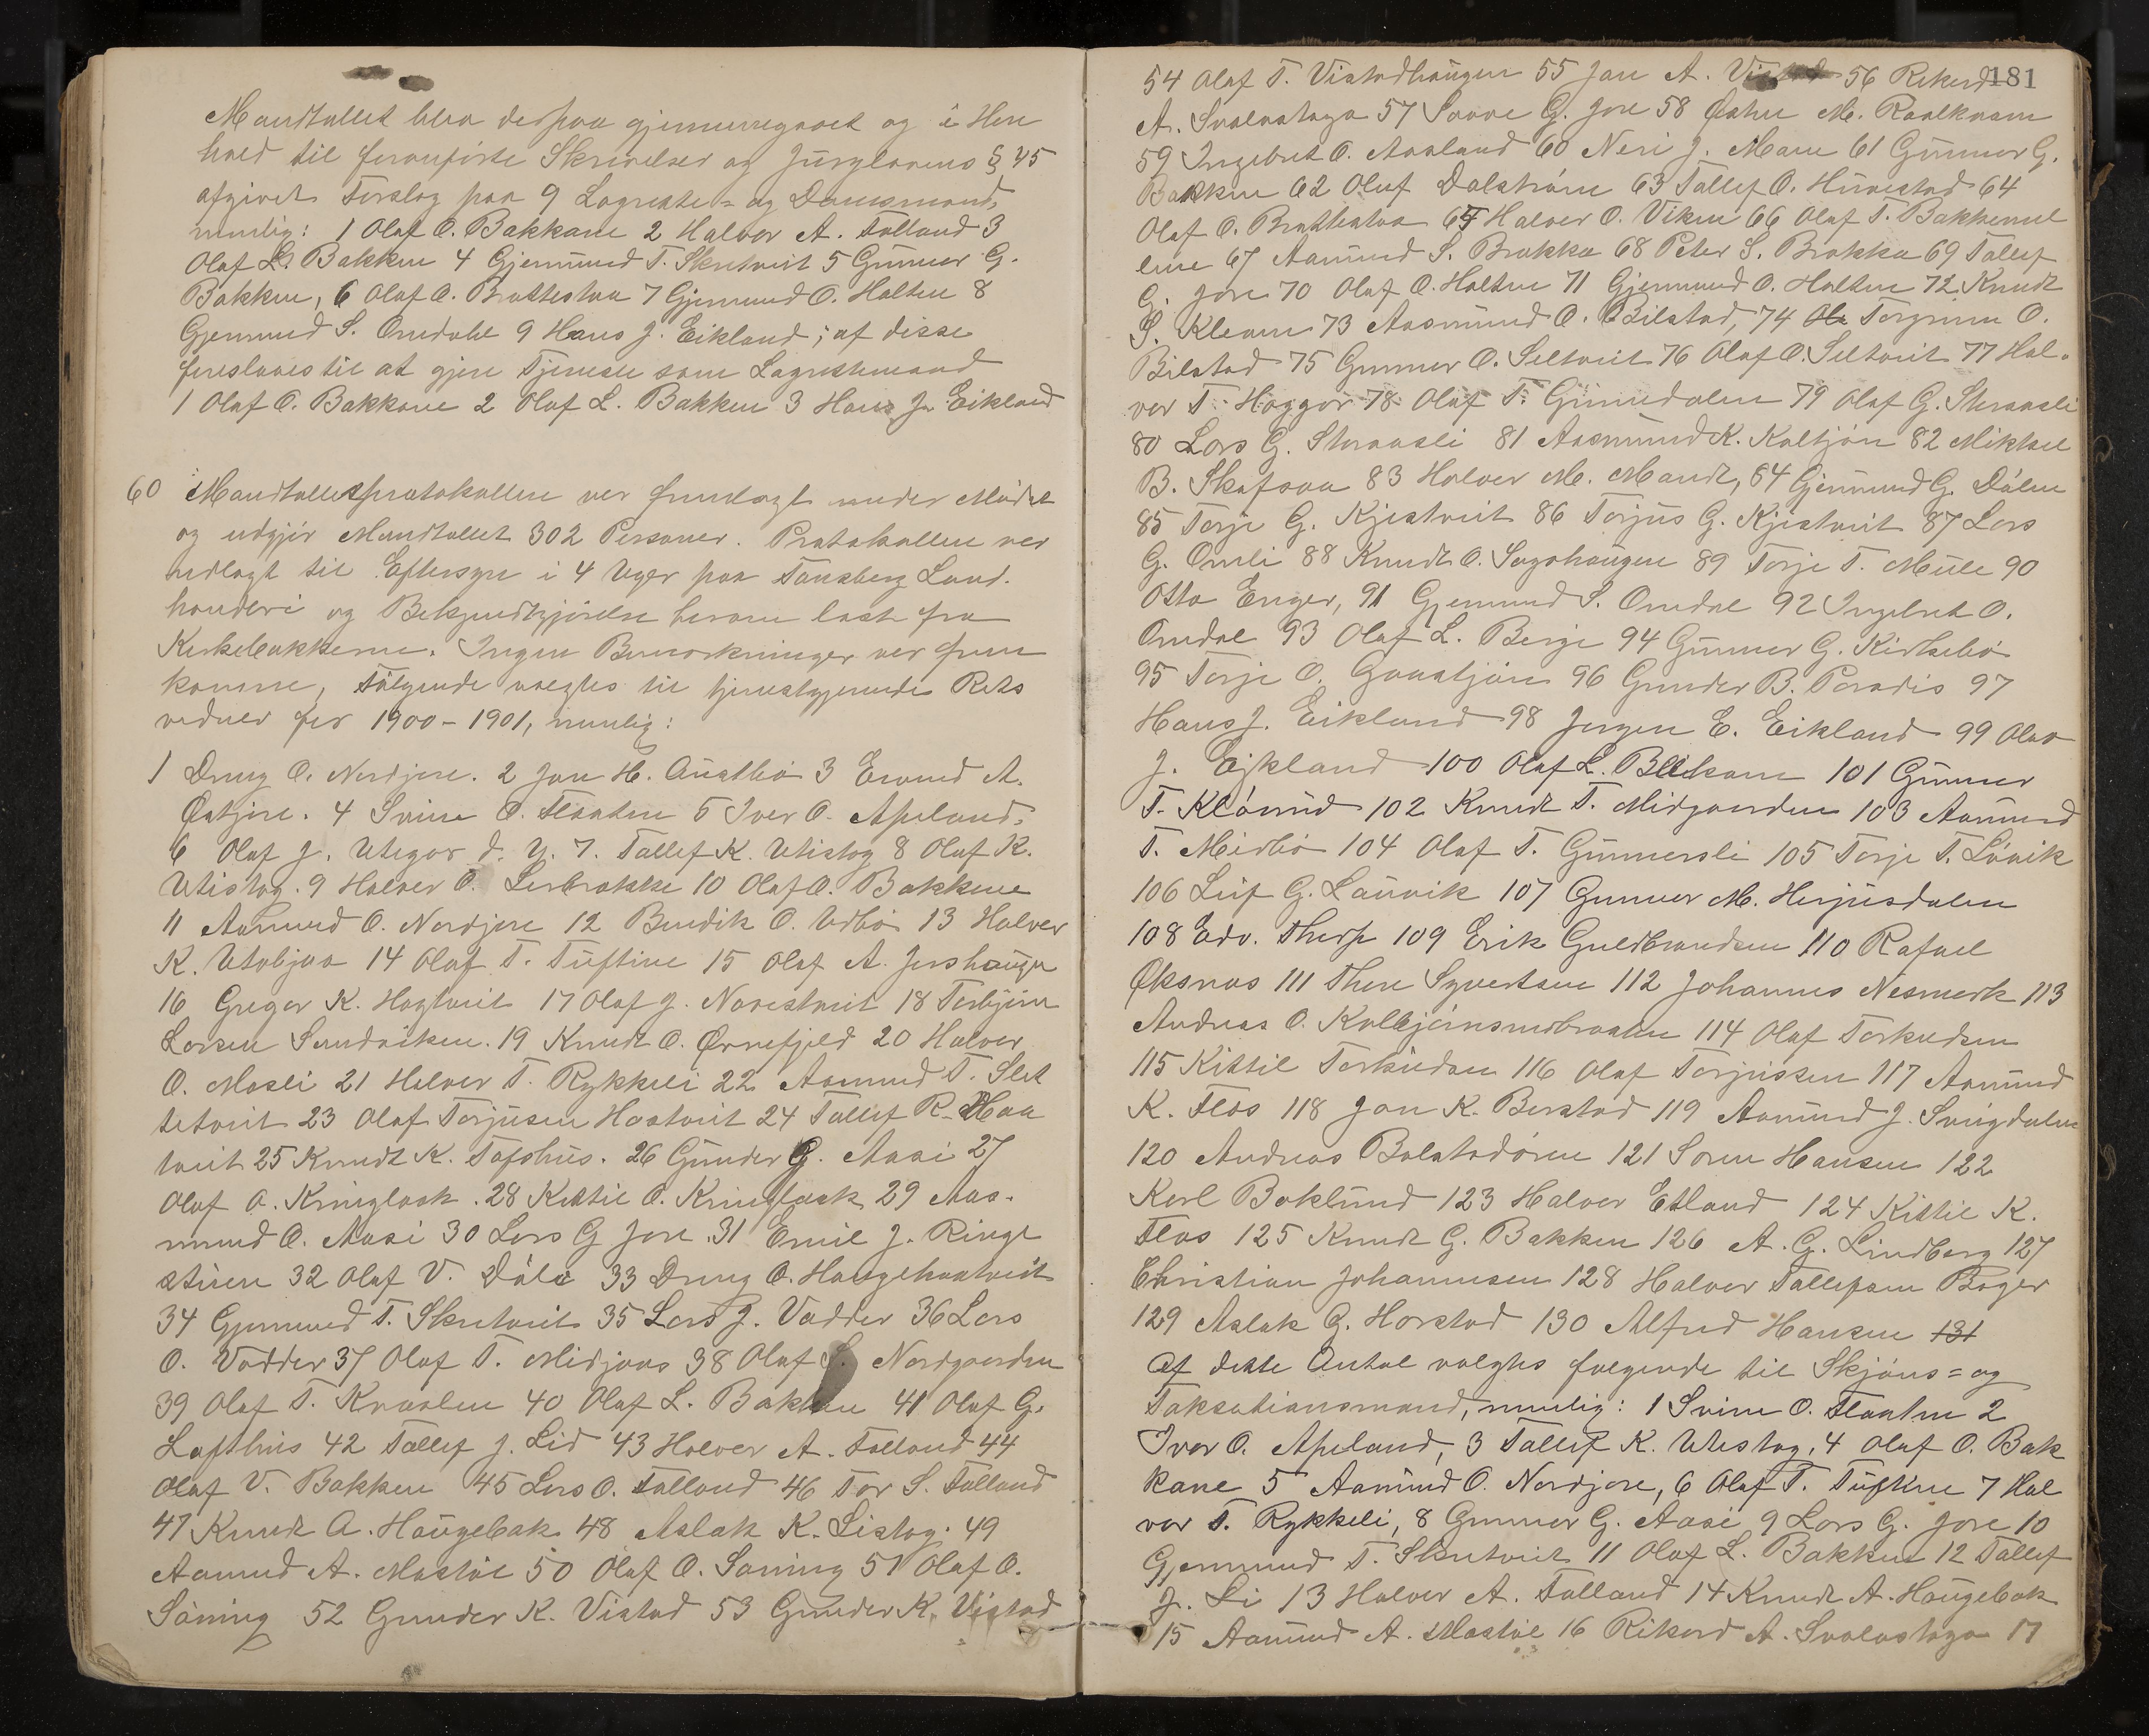 Mandtallet blev derpaa gjennemgaaet og i Hen
hold til foranførte Skrivelser og Jurylovens § 45
afgivet Forslag paa 9 Lagrettes- og Domsmænd,
nemlig: 1 Olaf O. Bakkane 2 Halvor A. Folland 3
Olaf L. Bakken 4 Gjermund T. Skretveit 5 Gunnar G.
Bakken, 6 Olaf O. Brattestaa 7 Gjermund O. Holten 8
Gjermund S. Omdahl 9 Hans J. Eikland; af disse
foreslaaes til at gjøre Tjeneste som Lagrettemænd
1 Olaf O. Bakkane 2 Olaf L. Bakken 3 Hans J. Eikland
60 Mandtallsprotokollen var fremlagt under Mødet
og udgjør Mandtallet 302 Personer. Protokollen var
udlagt til Eftersyn i 4 Uger paa Tønsberg Land.
handleri og Bekjendtgjørelse herom læst fra
Kirkebakkerne. Ingen Bemærkninger var frem
komne, Følgende valgtes til tjenestgjørende Rets
vidner for 1900-1901, nemlig:
1 Dreng O. Nordjore. 2 Jon H. Austbø 3 Eivind A.
Østjore. 4 Svein O. Flaaten 5 Iver O. Apeland.
6 Olaf J. Utegar d. y. 7. Tallef K. Utistog 8 Olaf K.
Utistog. 9 Halvor O. Lerbrække 10 Olaf O. Bakkene
11 Aamund O. Nordjore 12 Bendik O. Udbø 13 Halvor
K. Utabjaa 14 Olaf T. Tuftine 15 Olaf A. Joshaugen
16 Gregar K. Hogtveit 17 Olaf J. Navestveit 18 Torbjørn
Larsen Sandviken. 19 Knudt O. Ørnefjeld 20 Halvor
O. Mosli 21 Halvor T. Rykkeli 22 Aamund T. Slet
tetveit 23 Olaf Torjusen Hostveit 24 Tallef R. Haa
tveit 25 Knudt K. Tofshus. 26 Gunder G. Aasi 27
Olaf A. Kringlaak. 28 Kittil O. Kringlaak 29 Aas-
mund O. Aasi 30 Lars G Jore. 31 Emil J. Ringe
stuen 32 Olaf V. Døle 33 Dreng O. Haugehaatveit
34 Gjermund T. Skretveit 35 Lars J. Vadder 36 Lars
O. Vadder 37 Olaf T. Midjaas 38 Olaf S. Nordgaarden
39 Olaf T. Kvaalen 40 Olaf L. Bakken 41 Olaf G.
Lofthus 42 Tallef J. Lid 43 Halvor A. Folland 44
Olaf V. Bakken 45 Lars O. Folland 46 Tor S. Folland
47 Knudt A. Haugebak 48 Aslak K. Listog. 49
Aamund A. Mostøl 50 Olaf O. Søning 51 Olaf O.
Søning 52 Gunder K. Vistad 53 Gunder K. Vistad
181
54 Olaf T. Vistadhaugen 55 Jon A. Vistad 56 Rikard
A. Svalastoga 57 Saave G. Jore 58 Østen M. Raalkvam
59 Ingebret O. Aasland 60 Neri J. Moen 61 Gunnar G.
Bakken 62 Oluf Dalstrøm 63 Tallef O. Huvestad 64
Olaf O. Brattestaa 65 Halvor O. Viken 66 Olaf T. Bakkemel
lene 67 Aamund S. Brokka 68 Peter S. Brokka 69 Tallef
G. Jore 70 Olaf O. Holten 71 Gjermund O. Holten 72 Knudt
S. Kleven 73 Aasmund O. Bilstad, 74 Ol Torgrim O.
Bilstad 75 Gunnar O. Seltveit 76 Olaf O. Seltveit 77 Hal-
vor T. Haggar 78 Olaf T. Grimedalen 79 Olaf G. Straasli
80 Lars G. Straasli 81 Aasmund K. Kaltjøn 82 Mikkel
B. Skafsaa 83 Halvor M. Mandt, 84 Gjermund G. Dølen
85 Torje G. Kjistveit 86 Torjus G. Kjistveit 87 Lars
G. Omli 88 Knudt O. Sagahaugen 89 Torje T. Mule 90
Otto Enger, 91 Gjermund S. Omdal 92 Ingebret O.
Omdal 93 Olaf L. Berge 94 Gunnar G. Kirkebø
95 Torje O. Gaastjøn 96 Gunder B. Paradis 97
Hans J. Eikland 98 Jørgen E. Eikland 99 Olav
J. Ejkland 100 Olaf L. Blekom 101 Gunnar
T. Kløvrud 102 Knudt T. Midgaarden 103 Aamund
T. Meirbø 104 Olaf T. Gunnersli 105 Torje T. Løvik
106 Leif G. Lauvik 107 Gunnar M. Herjusdalen
108 Edv. Thorp 109 Erik Guldbrandsen 110 Rafael
Øksnas 111 Thore Syvertsen 112 Johannes Nesmerk 113
Andreas O. Kolbjørnsmobraaten 114 Olaf Torkudsen
115 Kittil Torkudsen 116 Olaf Torjussen 117 Aamund
K. Flos 118 Jon K. Berstad 119 Aamund J. Svigdalen
120 Andreas Bolstadøren 121 Søren Hansen 122
Karl Boklund 123 Halvor Etland 124 Kittil K.
Flos 125 Knudt G. Bakken 126 A. G. Lindberg 127
Christian Johannesen 128 Halvor Tallefsen Bøger
129 Aslak G. Harstad 130 Alfred Hansen 131
Af dette Antal valgtes følgende til Skjøns- og
Taksationsmænd, nemlig: 1 Svein O. Flaaten 2
Iver O. Apeland, 3 Tallef K. Utistog, 4 Olaf O. Bak
kane 5 Aamund O. Nordjore, 6 Olaf T. Tuftine 7 Hal
vor T. Rykkeli, 8 Gunnar G. Aasi 9 Lars G. Jore 10
Gjermund T. Skretveit 11 Olaf L. Bakken 12 Tallef
J. Li 13 Halvor A. Folland 14 Knudt A. Haugebak
15 Aamund A. Mostøl 16 Rikard A. Svalastoga 17